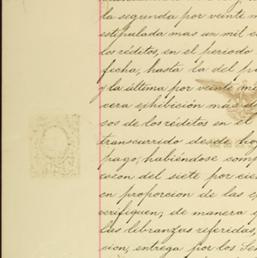 la segunda por veinte m
estipulada mas un mil
los réditos, en el periodo
fecha, hasta la del p
y la última por veinte mi
cera exhibición mas d
sos de los réditos en el
transcurrido desde ho
pago, habiéndose comp
con del siete por cie
en proporcion de las
verifiquen; de manera q
las libranzas referidas,
cion, entrega por los Se